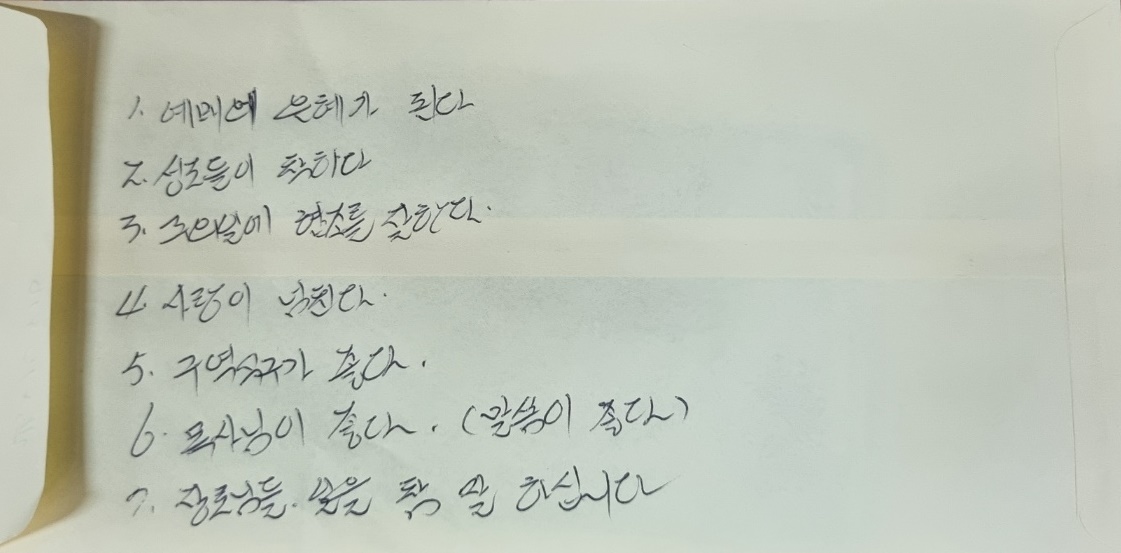 1. 예배에 은혜가 된다
2. 성도들이 착하다
3. 주의날에 헌초를 잘한다.
4. 사랑이 넘친다.
5. 구역식구가 좋다.
6. 목사님이 좋다. (말씀이 좋다)
7. 장로님들. 일을 참 잘 하십니다